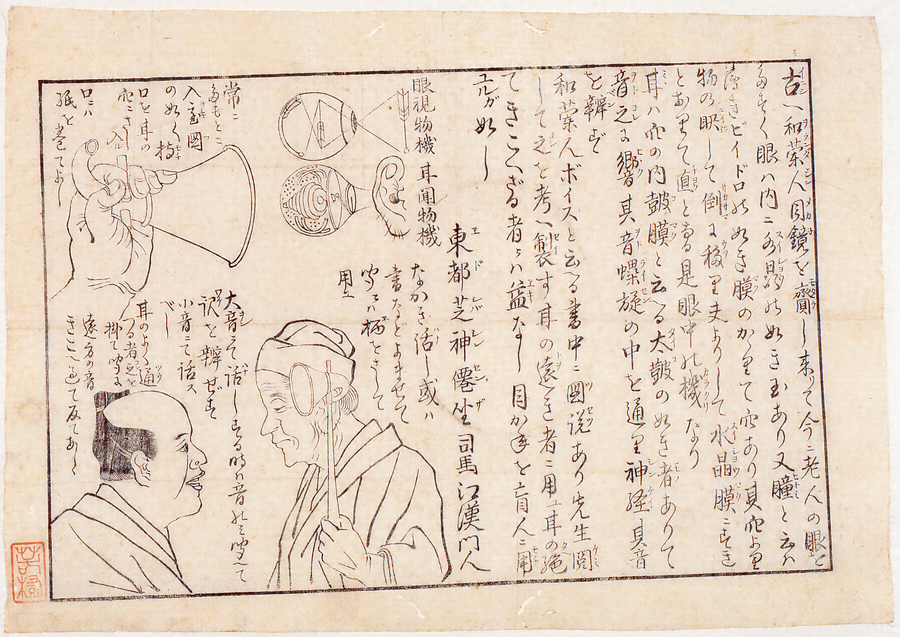 古ヘ和蘭人目鏡を齎し来りて今ニ老人の眼を
たすく眼ハ内ニ水晶の如き玉あり又瞳と云ハ
薄きビイドロの如き膜のかゝりて穴あり其穴より
物の映して倒に移り夫よりして水晶膜ニすき
とありて直と為る是眼中の機なり
耳ハ穴の内皷膜と云へる太皷の如き者ありて
音之に響其音螺旋の中を通り神経其音
を辨ず
和蘭人ボイスと云へる書中ニ圖説あり先生閲
して之を考へ製す耳の遠き者ニ用ユ耳の絶
てきこへざる者ハ益なし目がねを盲人ニ用
ユルガ如し
東都芝神僊坐司馬江漢門人
眼視物機 耳聞物機
なかき話し或ハ
書などよませて
聞くハ柄をさして
用ユ
常ニ
入る圖
の如く持
口を耳の
穴にさし入
口ハ
紙を巻てよ
大音にて話しする時ハ音のミ聞へて
訳を辨ぜず
小音ニて話ス
べし
耳のよく通
掛て聞に
遠方の音